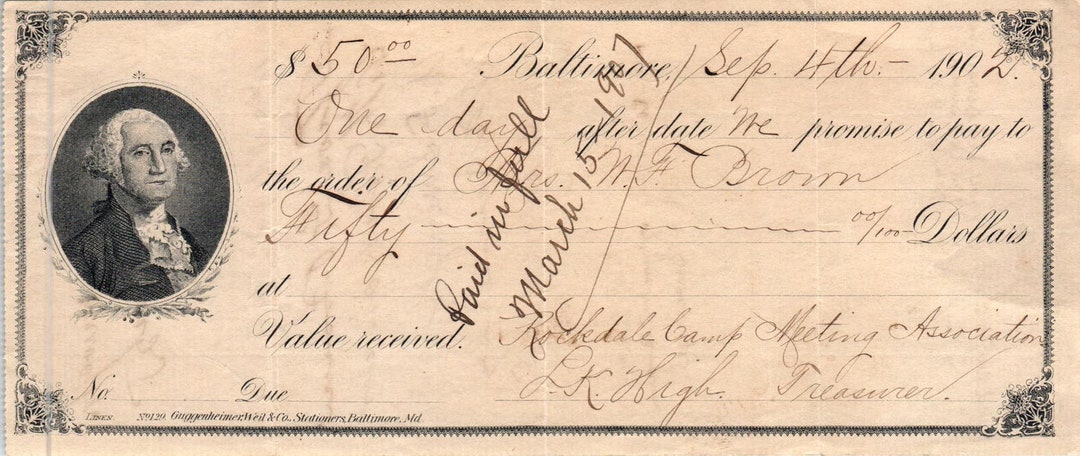 $ 50.00 Baltimore, Sep. 4th.- 1902.
One day after date We promise to pay to
the order of Mrs. W. F. Brown
Fifty 00/100 Dollars
at
Value received. Rockdale Camp Meeting Association
L. K. High. Treasurer.
No. Due
LINES. No 129. Guggenheimer, Weil & Co., Stationers, Baltimore, Md.
Paid in full
March 15 1907